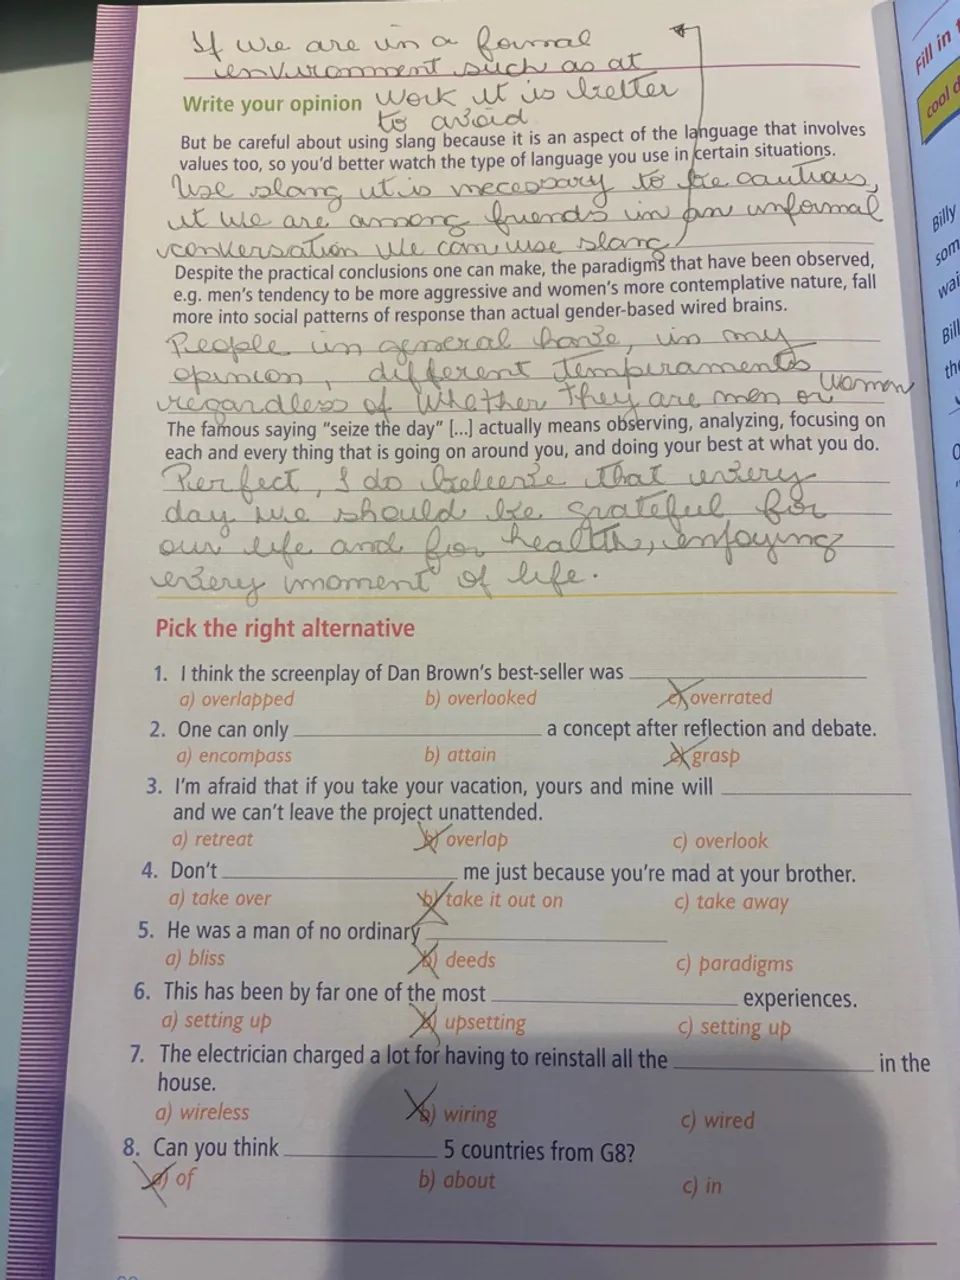 If we are in a formal
environment such as at
Write your opinion work it is better
to avoid
But be careful about using slang because it is an aspect of the language that involves
values too, so you'd better watch the type of language you use in certain situations.
Use slang it is necessary to be cautious,
it we are among friends in an unformal
conversation we can use slang
Despite the practical conclusions one can make, the paradigms that have been observed,
e.g. men's tendency to be more aggressive and women's more contemplative nature, fall
more into social patterns of response than actual gender-based wired brains.
People in general have, in my
opinion, different temperaments
regardless of whether they are men or women
The famous saying "seize the day" [...] actually means observing, analyzing, focusing on
each and every thing that is going on around you, and doing your best at what you do.
Perfect, I do believe that every
day we should be grateful for
our life and for health, enjoying
every moment of life.
Pick the right alternative
1. I think the screenplay of Dan Brown's best-seller was
a) overlapped b) overlooked c) overrated
2. One can only a concept after reflection and debate.
a) encompass b) attain c) grasp
3. I'm afraid that if you take your vacation, yours and mine will
and we can't leave the project unattended.
a) retreat b) overlap c) overlook
4. Don't me just because you're mad at your brother.
a) take over b) take it out on c) take away
5. He was a man of no ordinary
a) bliss b) deeds c) paradigms
6. This has been by far one of the most experiences.
a) setting up b) upsetting c) setting up
7. The electrician charged a lot for having to reinstall all the in the
house.
a) wireless b) wiring c) wired
8. Can you think 5 countries from G8?
a) of b) about c) in
Fill in
cool
Billy
som
wai
Bill
the